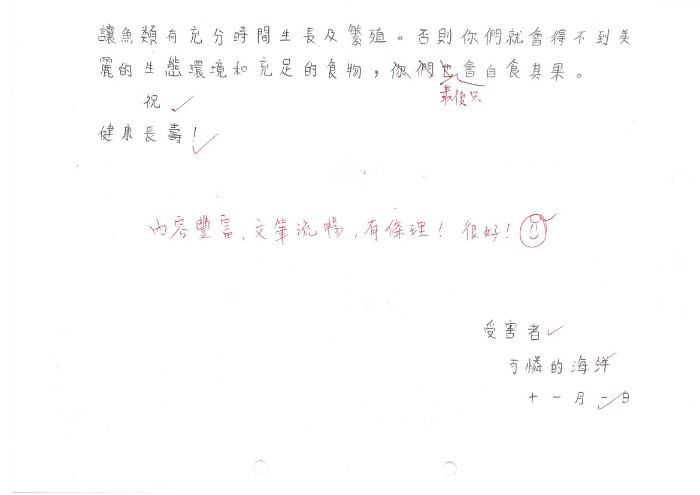 讓魚類有充分時間生長及繁殖。否則你們就會得不到美
麗的生態環境和充足的食物，你們也會自食其果。
最後只
祝
健康長壽！
內容豐富，文筆流暢，有條理！很好！
受害者
可憐的海洋
十一月一日